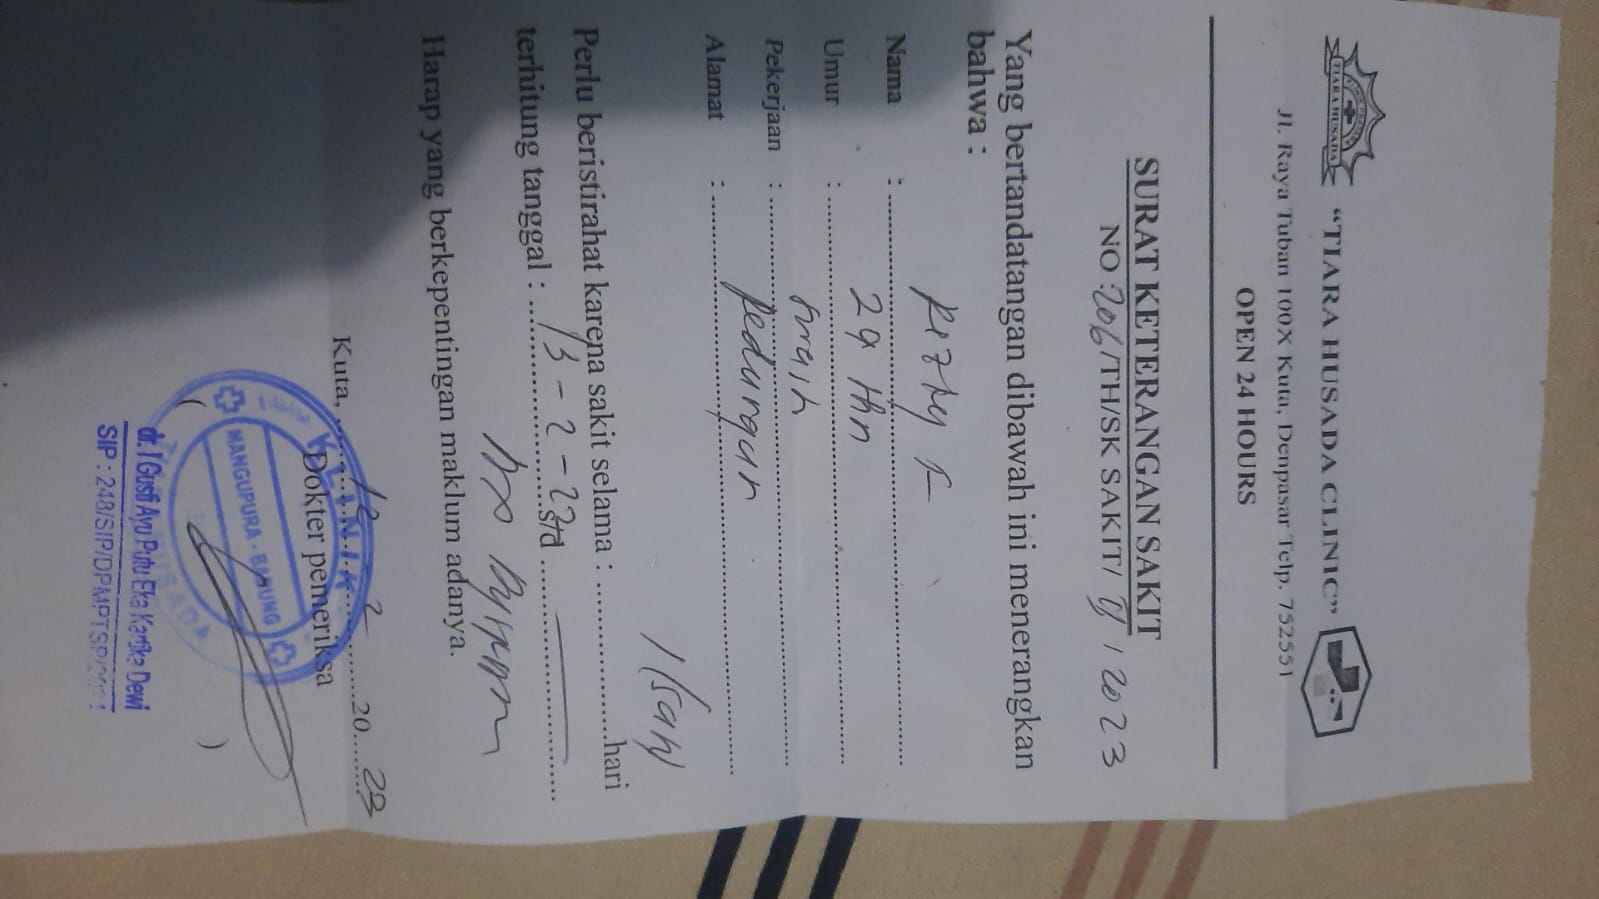 TIARA HUSADA
"TIARA HUSADA CLINIC"
Jl. Raya Tuban 100X Kuta, Denpasar Telp. 752551
OPEN 24 HOURS
SURAT KETERANGAN SAKIT
NO : 206/TH/SK SAKIT/ II / 2023
Yang bertandatangan dibawah ini menerangkan
bahwa :
Nama :
Umur : 29 thn
Pekerjaan :
Alamat : Pedungan
Perlu beristirahat karena sakit selama : 1 (satu) hari
terhitung tanggal : 13 - 2 - 23 s/d
Harap yang berkepentingan maklum adanya.
Kuta, 2 20 23
Dokter pemeriksa
KLINIK
MANGUPURA - BADUNG
HUSADA
( )
dr. I Gusti Ayu Putu Eka Kartika Dewi
SIP : 248/SIP/DPMPTSP/